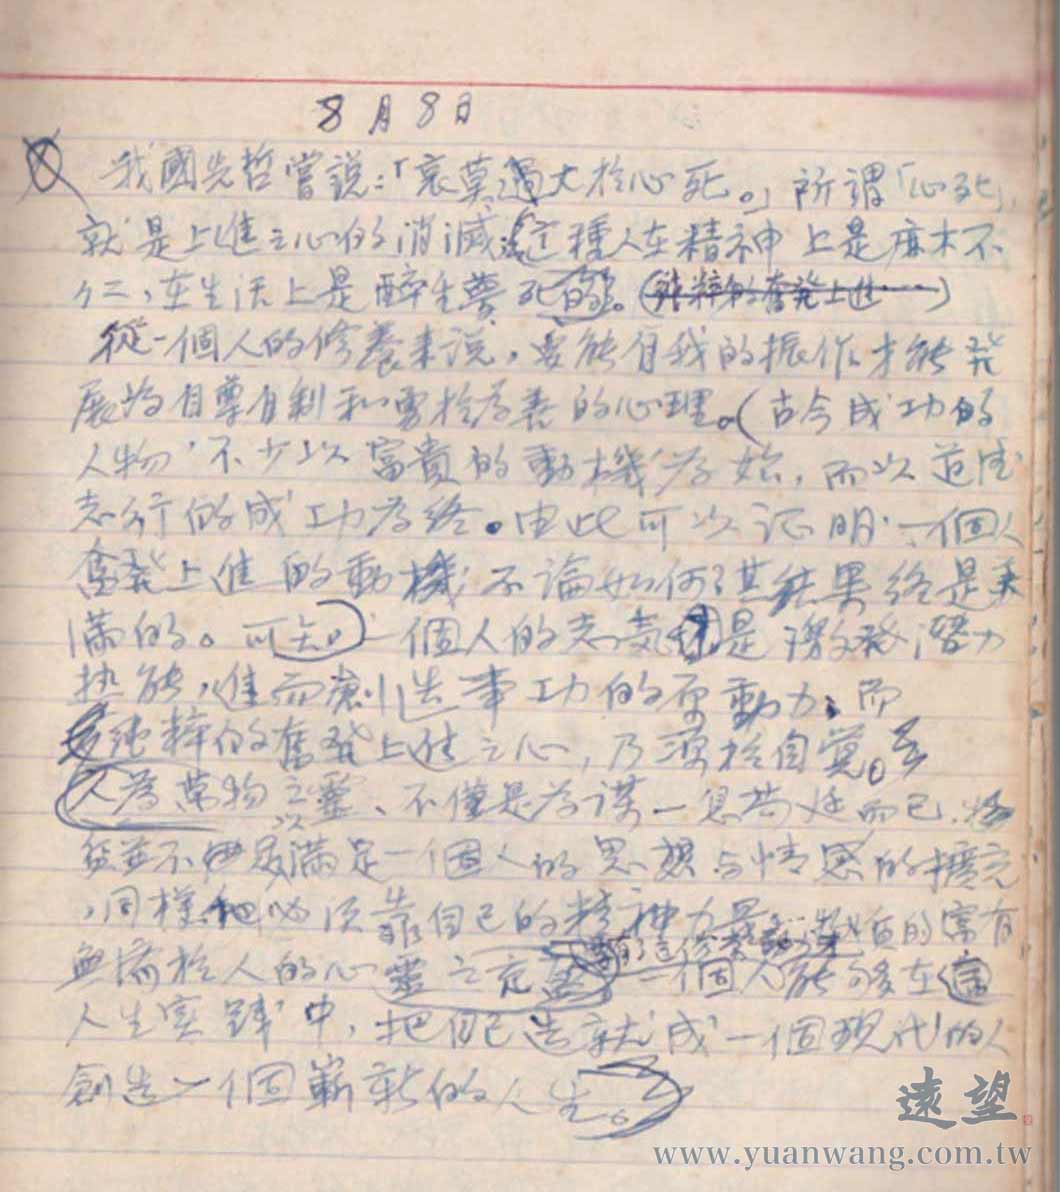 8月8日
我國先哲嘗說：「哀莫過大於心死。」所謂「心死」，
就是上進之心的消滅；這種人在精神上是麻木不
仁，在生活上是醉生夢死的。（純粹的奮發上進……）
從一個人的修養來說，要能有我的振作才能發
展為自尊自制和勇於為善的心理。（古今成功的
人物，不少以富貴的動機為始，而以道德
志行的成功為終。由此可以证明，一個人
奮發上進的動機不論如何，其結果終是美
滿的。可知，一個人的志氣是激發潛力
热能，進而創造事工的原動力，而
純粹的奮發上進之心，乃源於自覺。
人為萬物之靈、不僅是為謀一息苟延而已，
並不以滿足一個人的思想与情感的擴充
，同樣，他必须靠自己的精神力量，物質的富有
無補於人的心靈之充實，一個人能够在
人生實踐中，把自己造就成一個現代的人
創造一個嶄新的人生。
遠望
www.yuanwang.com.tw